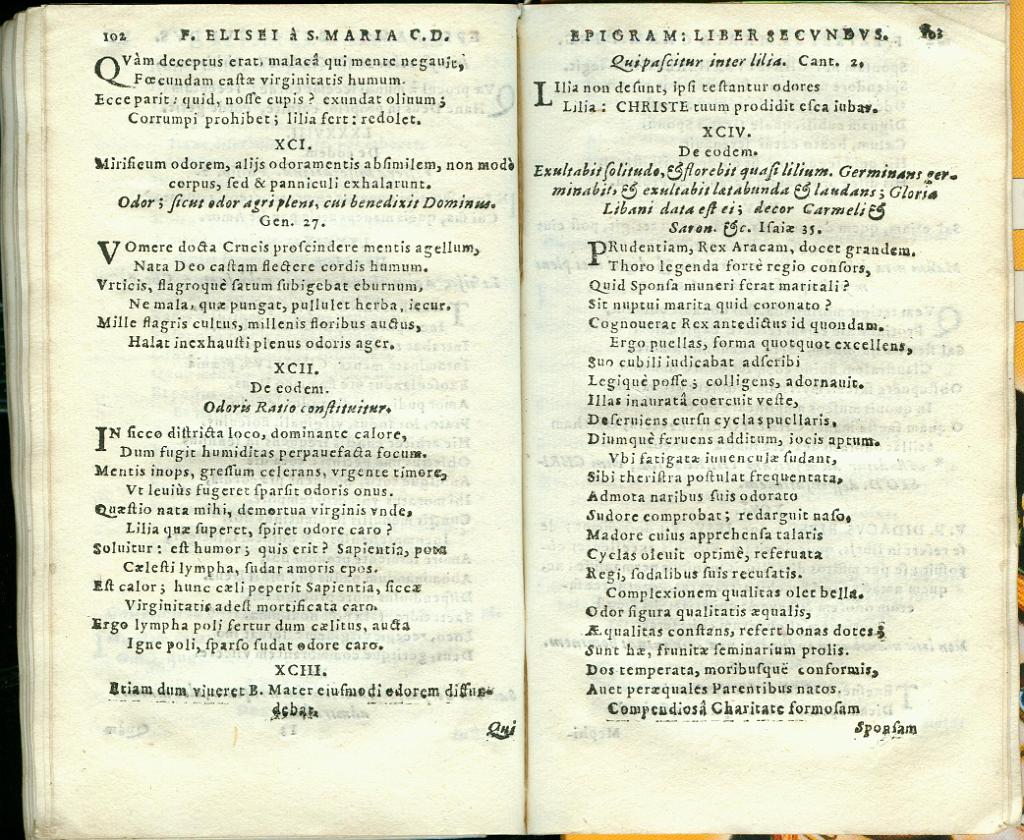 102 F. ELISEI à S. MARIA C.D.
QVàm deceptus erat, malacâ qui mente negauit,
Fœcundam castæ virginitatis humum.
Ecce parit: quid, nosse cupis? exundat oliuum;
Corrumpi prohibet; lilia fert: redolet.
XCI.
Mirificum odorem, alijs odoramentis absimilem, non modò
corpus, sed & panniculi exhalarunt.
Odor; sicut odor agri pleni, cui benedixit Dominus.
Gen. 27.
VOmere docta Crucis proscindere mentis agellum,
Nata Deo castam flectere cordis humum.
Vrticis, flagroquè satum subigebat eburnum,
Ne mala, quæ pungat, pullulet herba, iecur.
Mille flagris cultus, millenis floribus auctus,
Halat inexhausti plenus odoris ager.
XCII.
De eodem.
Odoris Ratio constituitur.
IN sicco districta loco, dominante calore,
Dum fugit humiditas perpauefacta focum.
Mentis inops, gressum celerans, vrgente timore,
Vt leuiùs fugeret sparsit odoris onus.
Quæstio nata mihi, demortua virginis vnde,
Lilia quæ superet, spiret odore caro?
Soluitur: est humor; quis erit? Sapientia, pota
Cælesti lympha, sudat amoris opos.
Est calor; hunc cæli peperit Sapientia, siccæ
Virginitatis adest mortificata caro.
Ergo lympha poli fertur dum cælitus, aucta
Igne poli, sparso sudat odore caro.
XCIII.
Etiam dum viueret B. Mater eiusmodi odorem diffun-
debat.
Qui
EPIGRAM: LIBER SECVNDVS. 103
Qui pascitur inter lilia. Cant. 2.
LIlia non desunt, ipsi testantur odores
Lilia: CHRISTE tuum prodidit esca iubar.
XCIV.
De eodem.
Exultabit solitudo, & florebit quasi lilium. Germinans ger-
minabit, & exultabit lætabunda & laudans; Gloria
Libani data est ei; decor Carmeli &
Saron. &c. Isaiæ 35.
PRudentiam, Rex Aracam, docet grandem.
Thoro legenda fortè regio consors,
Quid Sponsa muneri ferat maritali?
Sit nuptui marita quid coronato?
Cognouerat Rex antedictus id quondam.
Ergo puellas, forma quotquot excellens,
Suo cubili iudicabat adscribi
Legiquè posse; colligens, adornauit.
Illas inauratâ coercuit veste,
Deseruiens cursu cyclas puellaris,
Diumquè feruens additum, iocis aptum.
Vbi fatigatæ iuuenculæ sudant,
Sibi theristra postulat frequentata,
Admota naribus suis odorato
Sudore comprobat; redarguit naso,
Madore cuius apprehensa talaris
Cyclas oleuit optimè, reseruata
Regi, sodalibus suis recusatis.
Complexionem qualitas olet bella.
Odor figura qualitatis æqualis,
Æqualitas constans, refert bonas dotes;
Sunt hæ, frunitæ seminarium prolis.
Dos temperata, moribusquè conformis,
Auet peræquales Parentibus natos.
Compendiosâ Charitate formosam
Sponsam